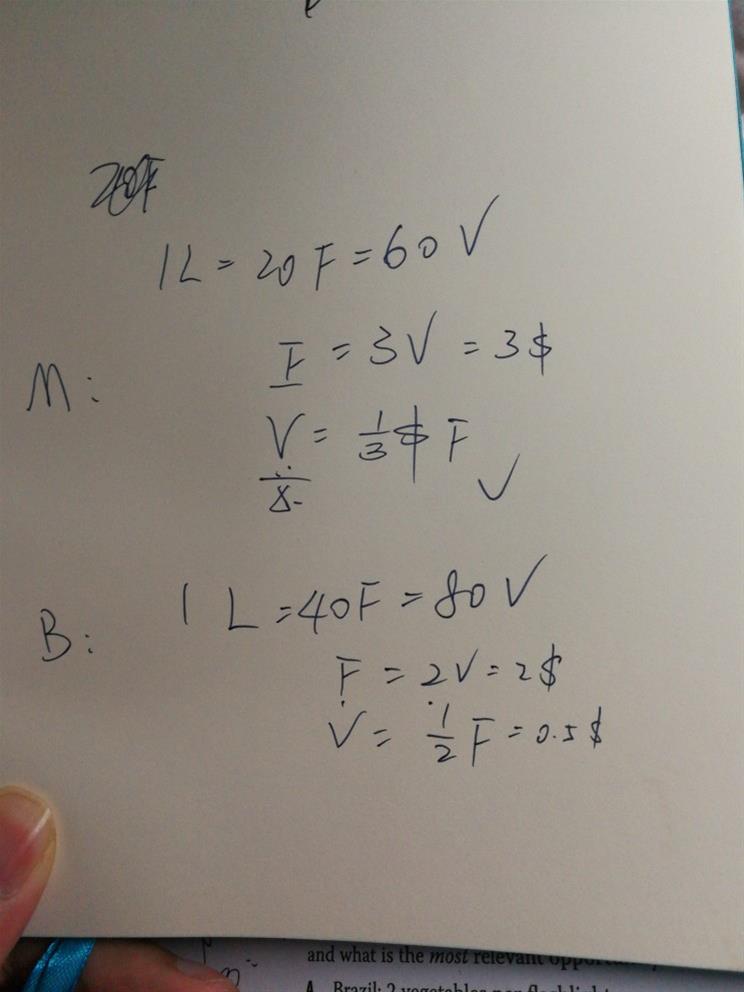 1L = 20 F = 60 V
M:
F = 3V = 3$
V = 1/3 $ F
B:
1 L = 40F = 80 V
F = 2V = 2$
V = 1/2 F = 0.5 $
and what is the most relevant
A. Brazil: 2 vegetables per